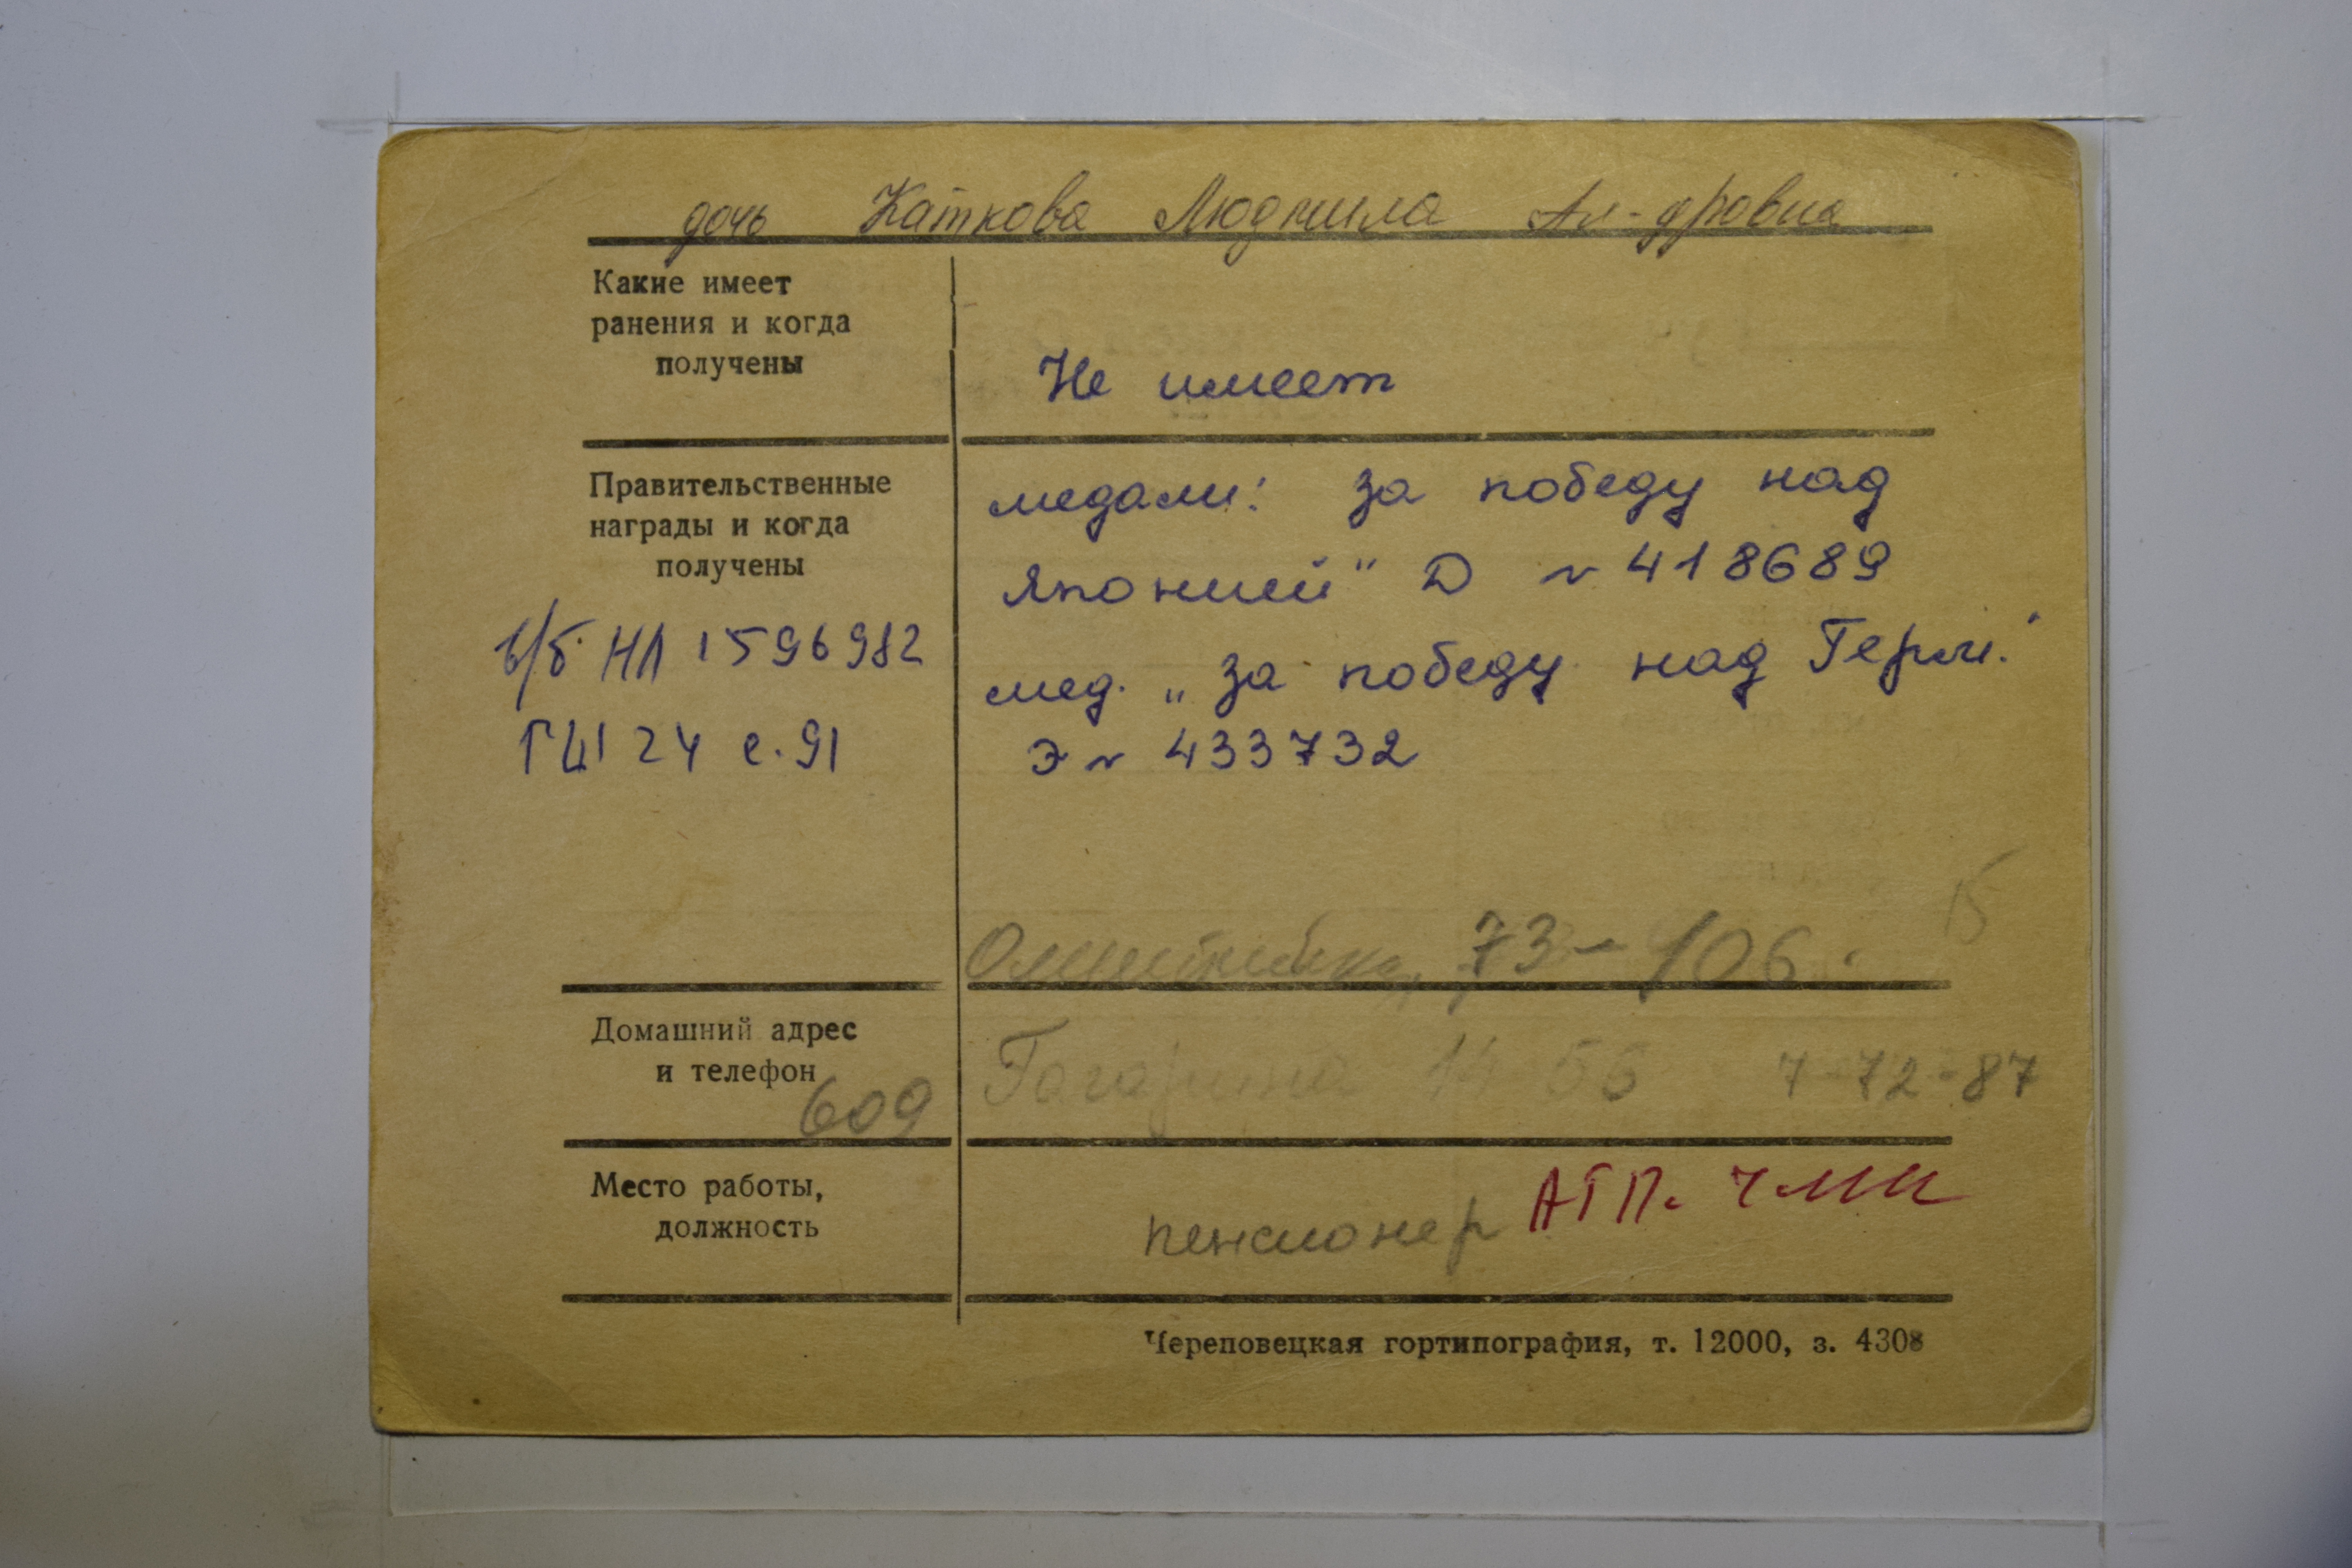 дочь Каткова Людмила Ал-дровна
Какие имеет
ранения и когда
получены
Не имеет
Правительственные
награды и когда
получены
медали: за победу над
Японией" Д № 418689
мед. „за победу над Герм."
Э № 433732
в/б НЛ 1596982
ГШ 24 с.91
15
73-106.
Домашний адрес
и телефон
609
Гагарина 14 56 7-72-87
Место работы,
должность
пенсионер АТП. ЧМК
Череповецкая гортипография, т. 12000, з. 4308